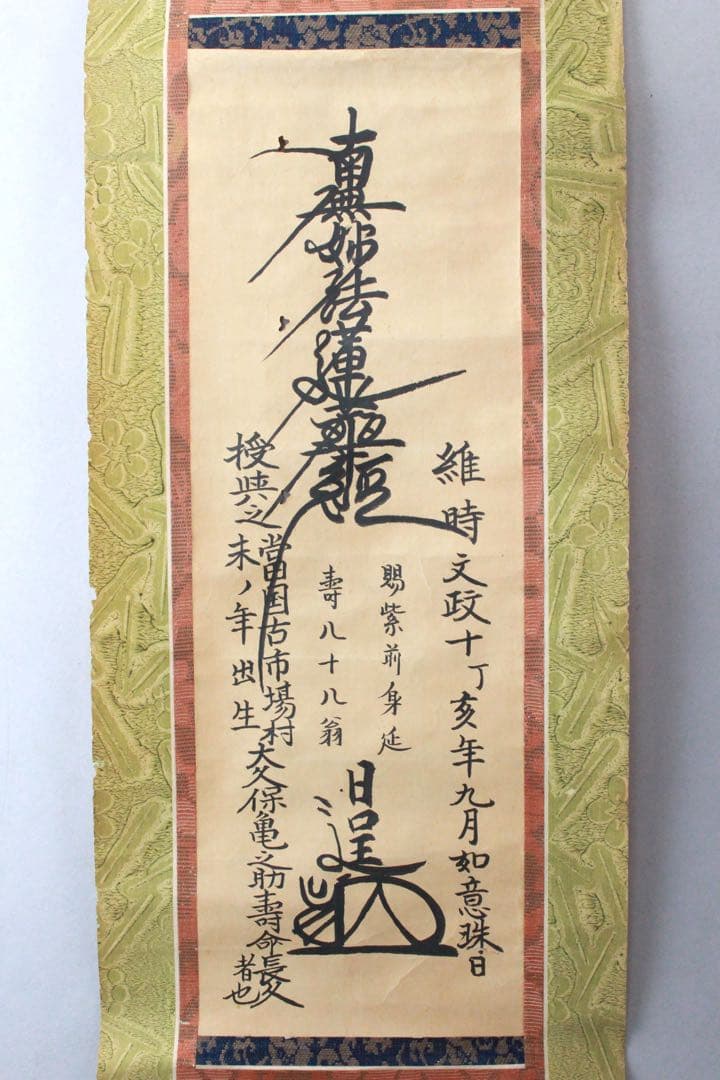 南無妙法蓮華經
維時文政十丁亥年九月如意珠日
賜紫前身延
壽八十八翁
日逞
授與之
當国古市場村
未ノ年出生
大久保亀之助壽命長久
者也